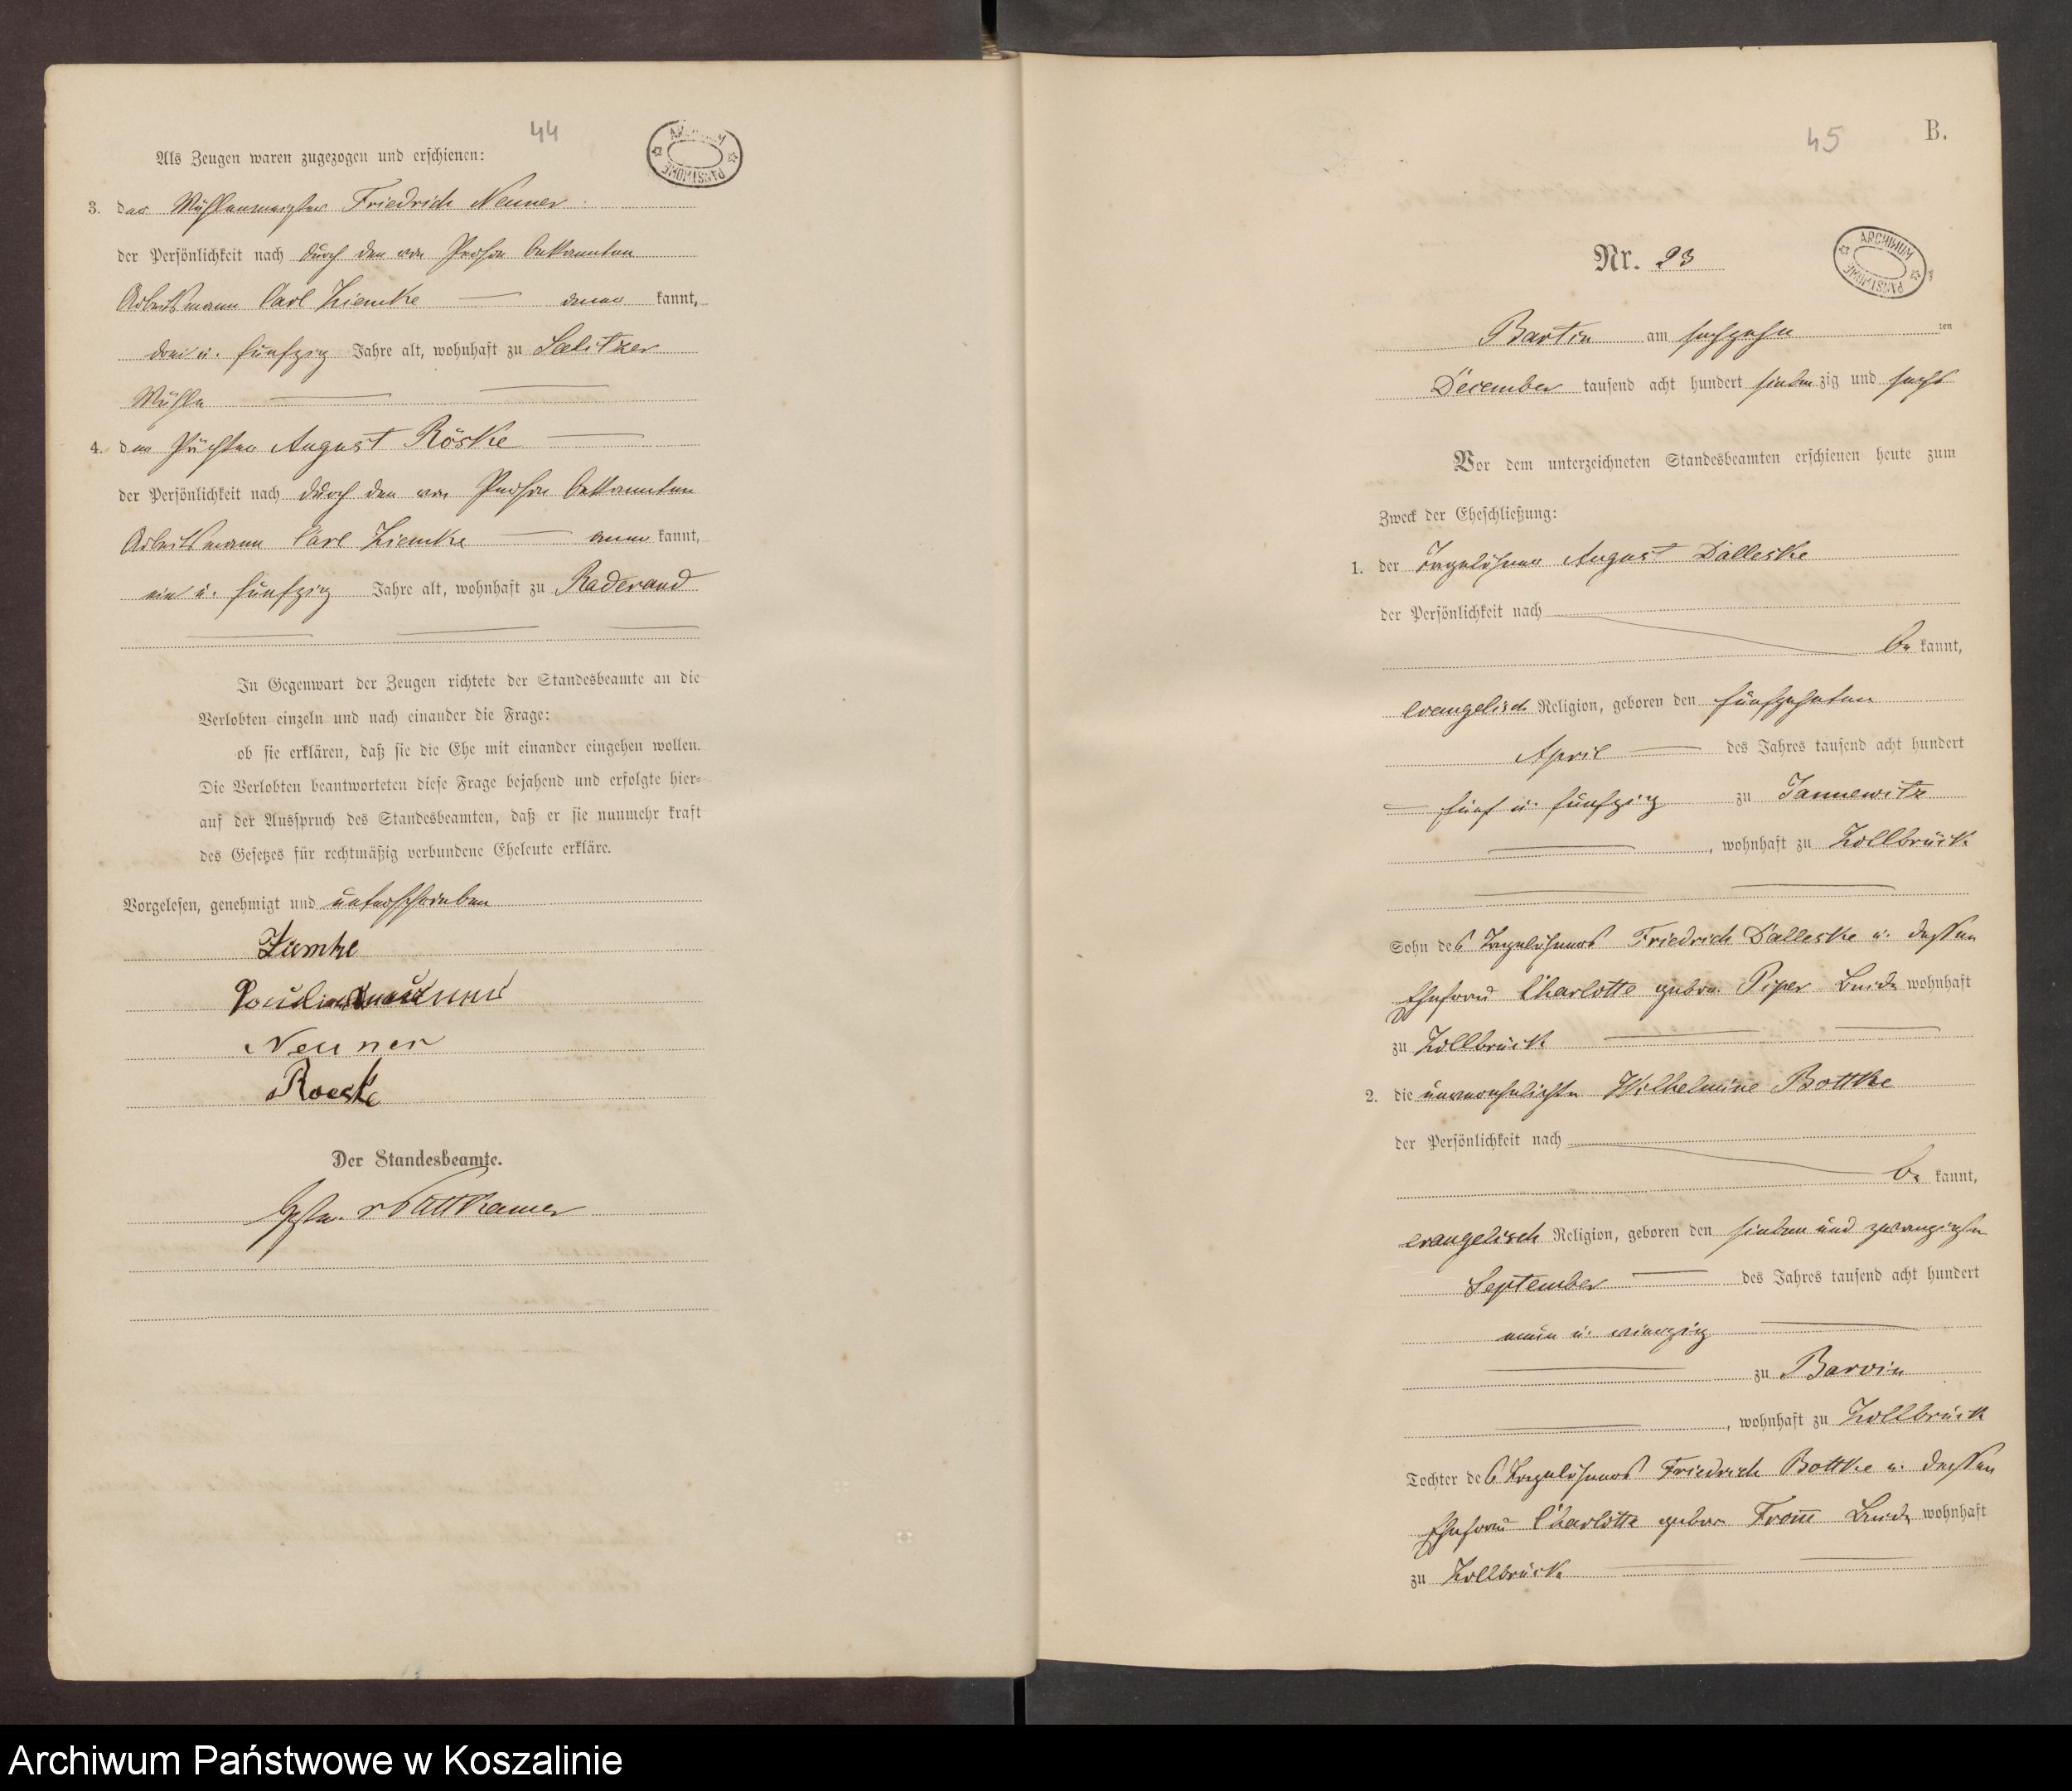 44
Als Zeugen waren zugezogen und erschienen:
3. der Mühlenmeister Friedrich Neuner
der Persönlichkeit nach durch den von Person bekannten
Arbeitsmann Carl Ziemke — aner kannt,
drei u. fünfzig Jahre alt, wohnhaft zu
Mühle
4. der Pächter August Röske
der Persönlichkeit nach durch den von Person bekannten
Arbeitsmann Carl Ziemke — aner kannt,
ein u. fünfzig Jahre alt, wohnhaft zu Raderand
In Gegenwart der Zeugen richtete der Standesbeamte an die
Verlobten einzeln und nach einander die Frage:
ob sie erklären, daß sie die Ehe mit einander eingehen wollen.
Die Verlobten beantworteten diese Frage bejahend und erfolgte hier-
auf der Ausspruch des Standesbeamten, daß er sie nunmehr kraft
des Gesetzes für rechtmäßig verbundene Eheleute erkläre.
Vorgelesen, genehmigt und unterschrieben
Ziemke
Neuner
Roeske
Der Standesbeamte.
v Puttkamer
ARCHIWUM PAŃSTWOWE
45
B.
Nr. 23
ARCHIWUM PAŃSTWOWE
Bartin am sechszehn ten
December tausend acht hundert siebenzig und sechs
Vor dem unterzeichneten Standesbeamten erschienen heute zum
Zweck der Eheschließung:
1. der Tagelöhner August Dalleske
der Persönlichkeit nach
be kannt,
evangelisch Religion, geboren den fünfzehnten
April des Jahres tausend acht hundert
fünf u. fünfzig zu Tannewitz
, wohnhaft zu Zollbrück
Sohn des Tagelöhners Friedrich Dalleske u. dessen
Ehefrau Charlotte gebor. Piper Beide wohnhaft
zu Zollbrück
2. die unverehelichte Wilhelmine Bottke
der Persönlichkeit nach
be kannt,
evangelisch Religion, geboren den sieben und zwanzigsten
September des Jahres tausend acht hundert
neun u. vierzig
zu Barvin
, wohnhaft zu Zollbrück
Tochter des Tagelöhners Friedrich Bottke u. dessen
Ehefrau Charlotte gebor. From̅ Beide wohnhaft
zu Zollbrück
Archiwum Państwowe w Koszalinie